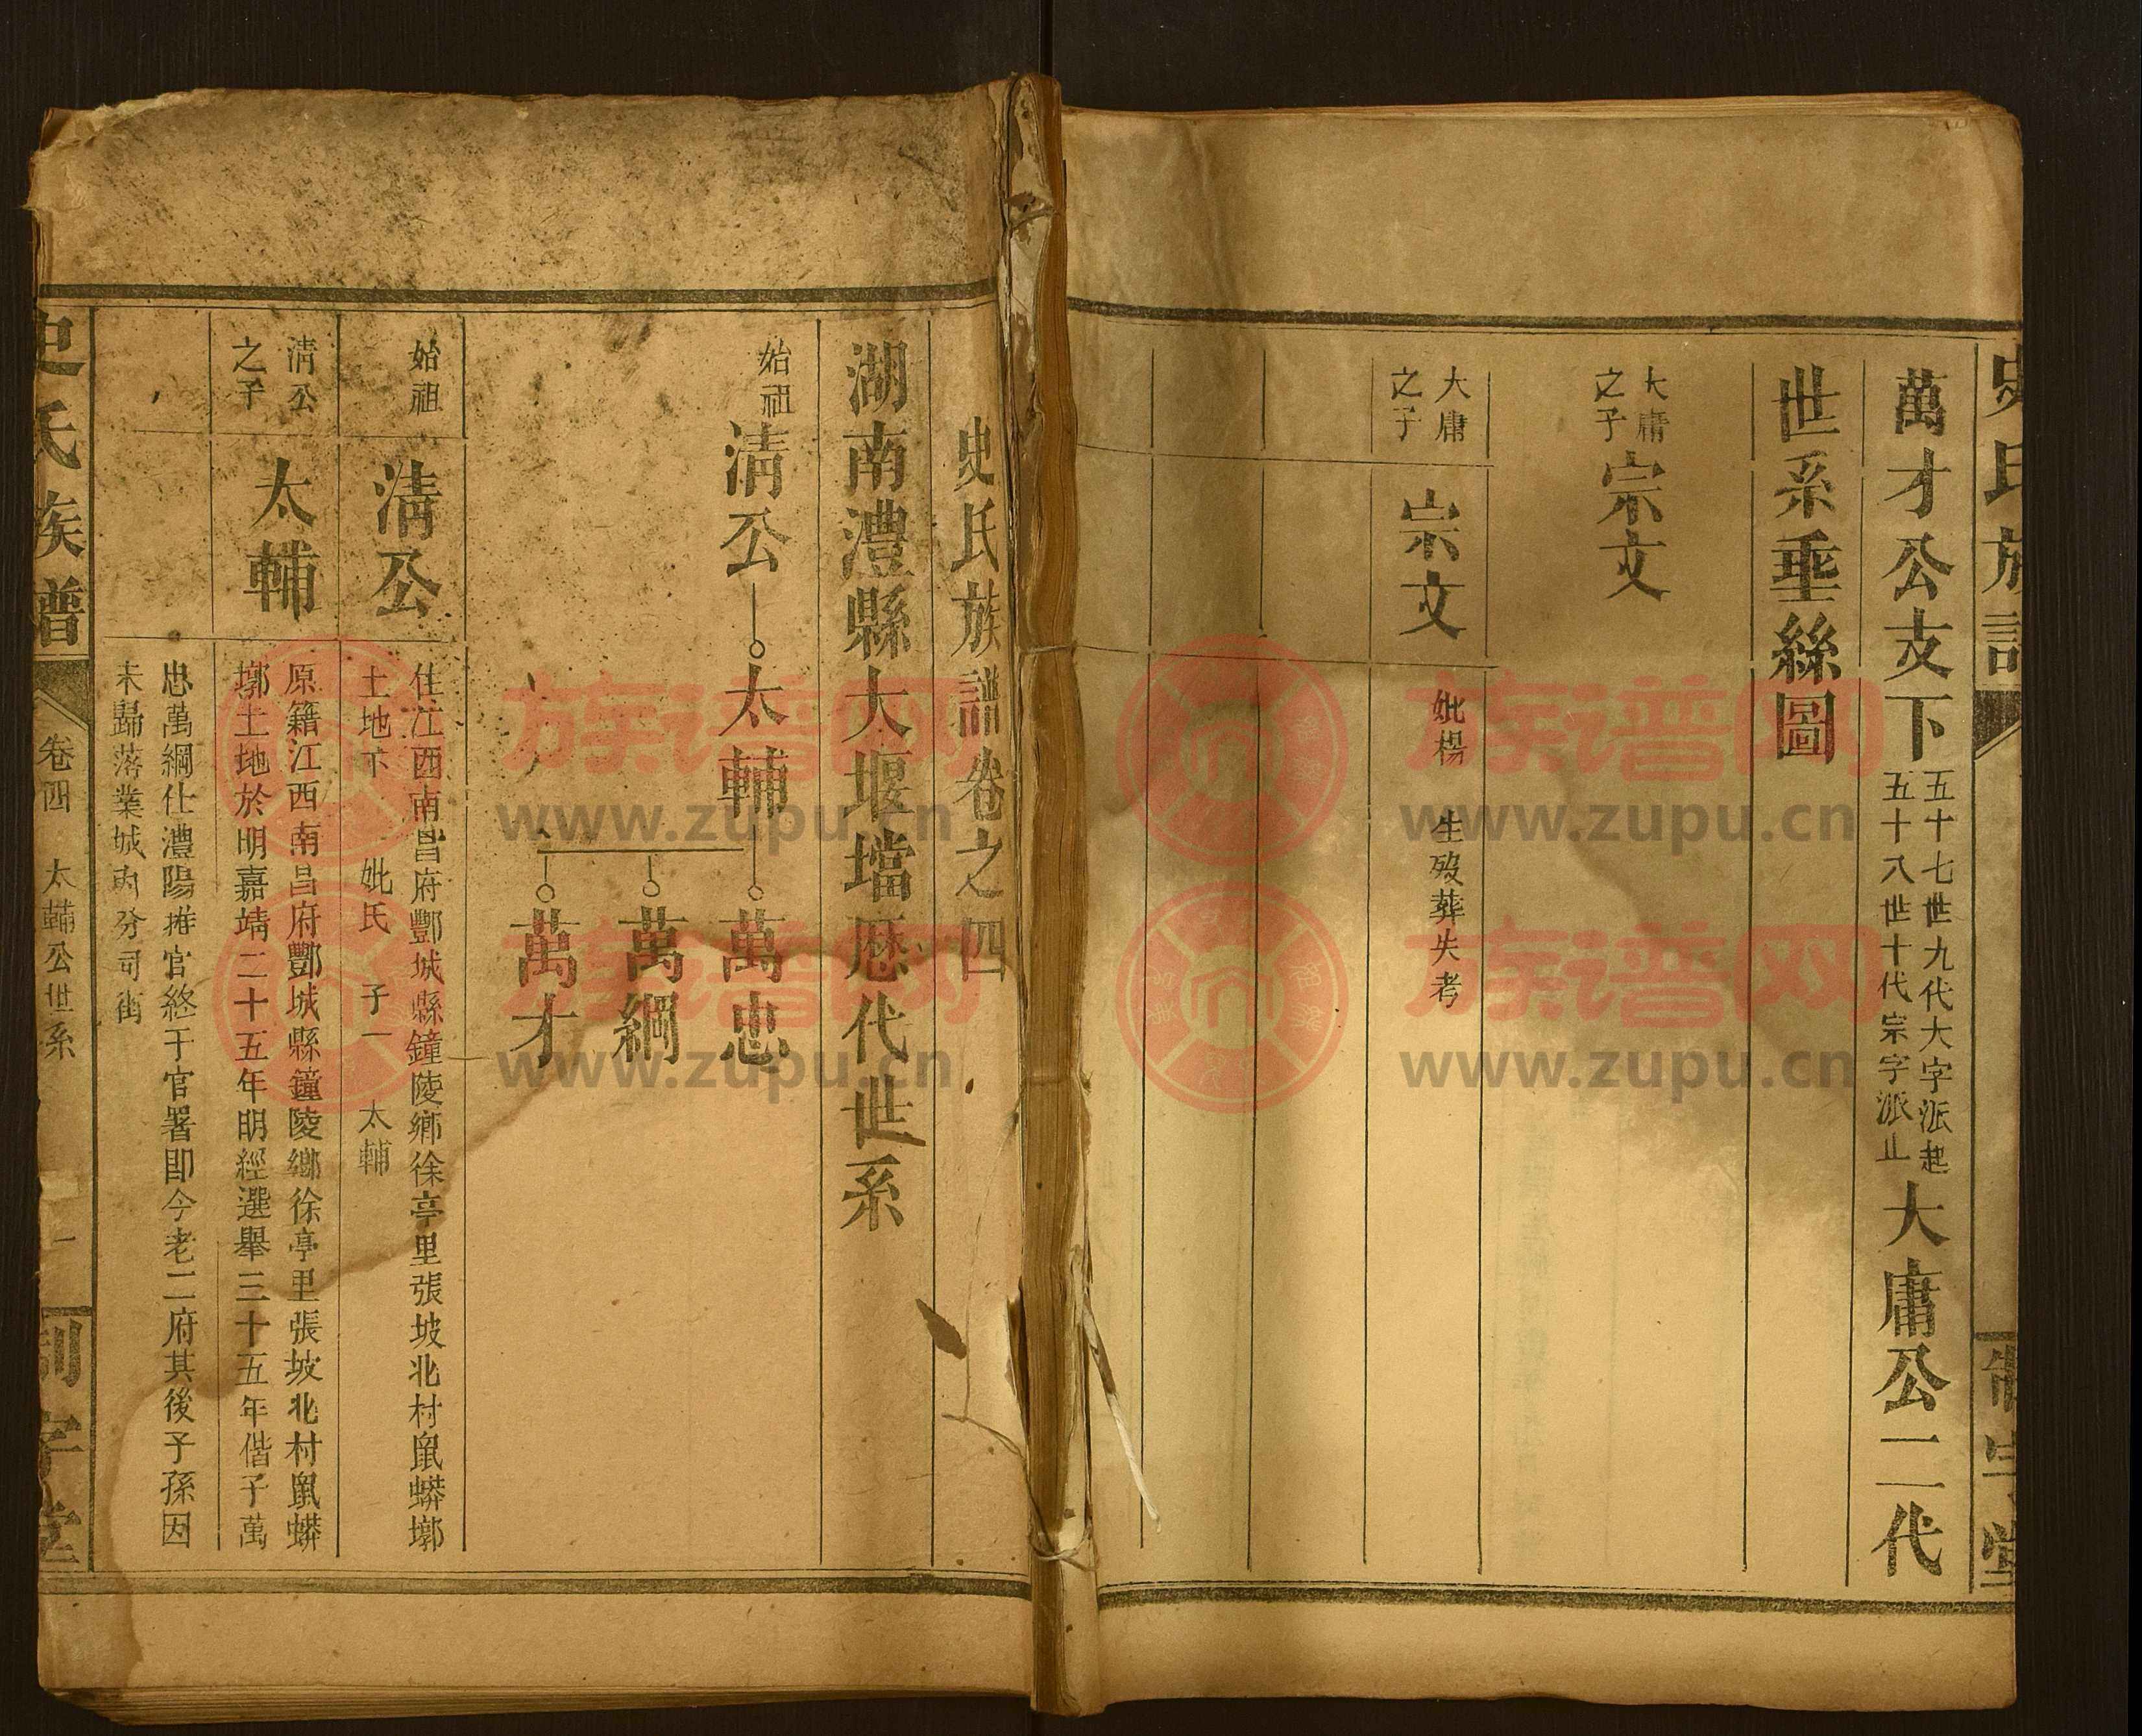 史氏族譜
萬才公支下
五十七世九代大字派起
五十八世十代宗字派止
大庸公二代
世系垂絲圖
大庸
之子
宗文
大庸
之子
宗文
妣楊 生歿葬失考
史氏族譜卷之四
湖南澧縣大堰壋歷代世系
始祖
清公
太輔
萬忠
萬綱
萬才
始祖
清公
住江西南昌府酆城縣鐘陵鄉徐亭里張坡北村鼠蟒墎
土地下 妣氏 子一 太輔
清公
之子
太輔
原籍江西南昌府酆城縣鐘陵鄉徐亭里張坡北村鼠蟒
墎土地於明嘉靖二十五年明經選舉三十五年偕子萬
忠萬綱仕澧陽推官終于官署即今老二府其後子孫因
未歸落業城內分司街
史氏族譜
卷四 太輔公世系
一
族谱网
www.zupu.cn
族谱网
www.zupu.cn
族谱网
www.zupu.cn
族谱网
www.zupu.cn